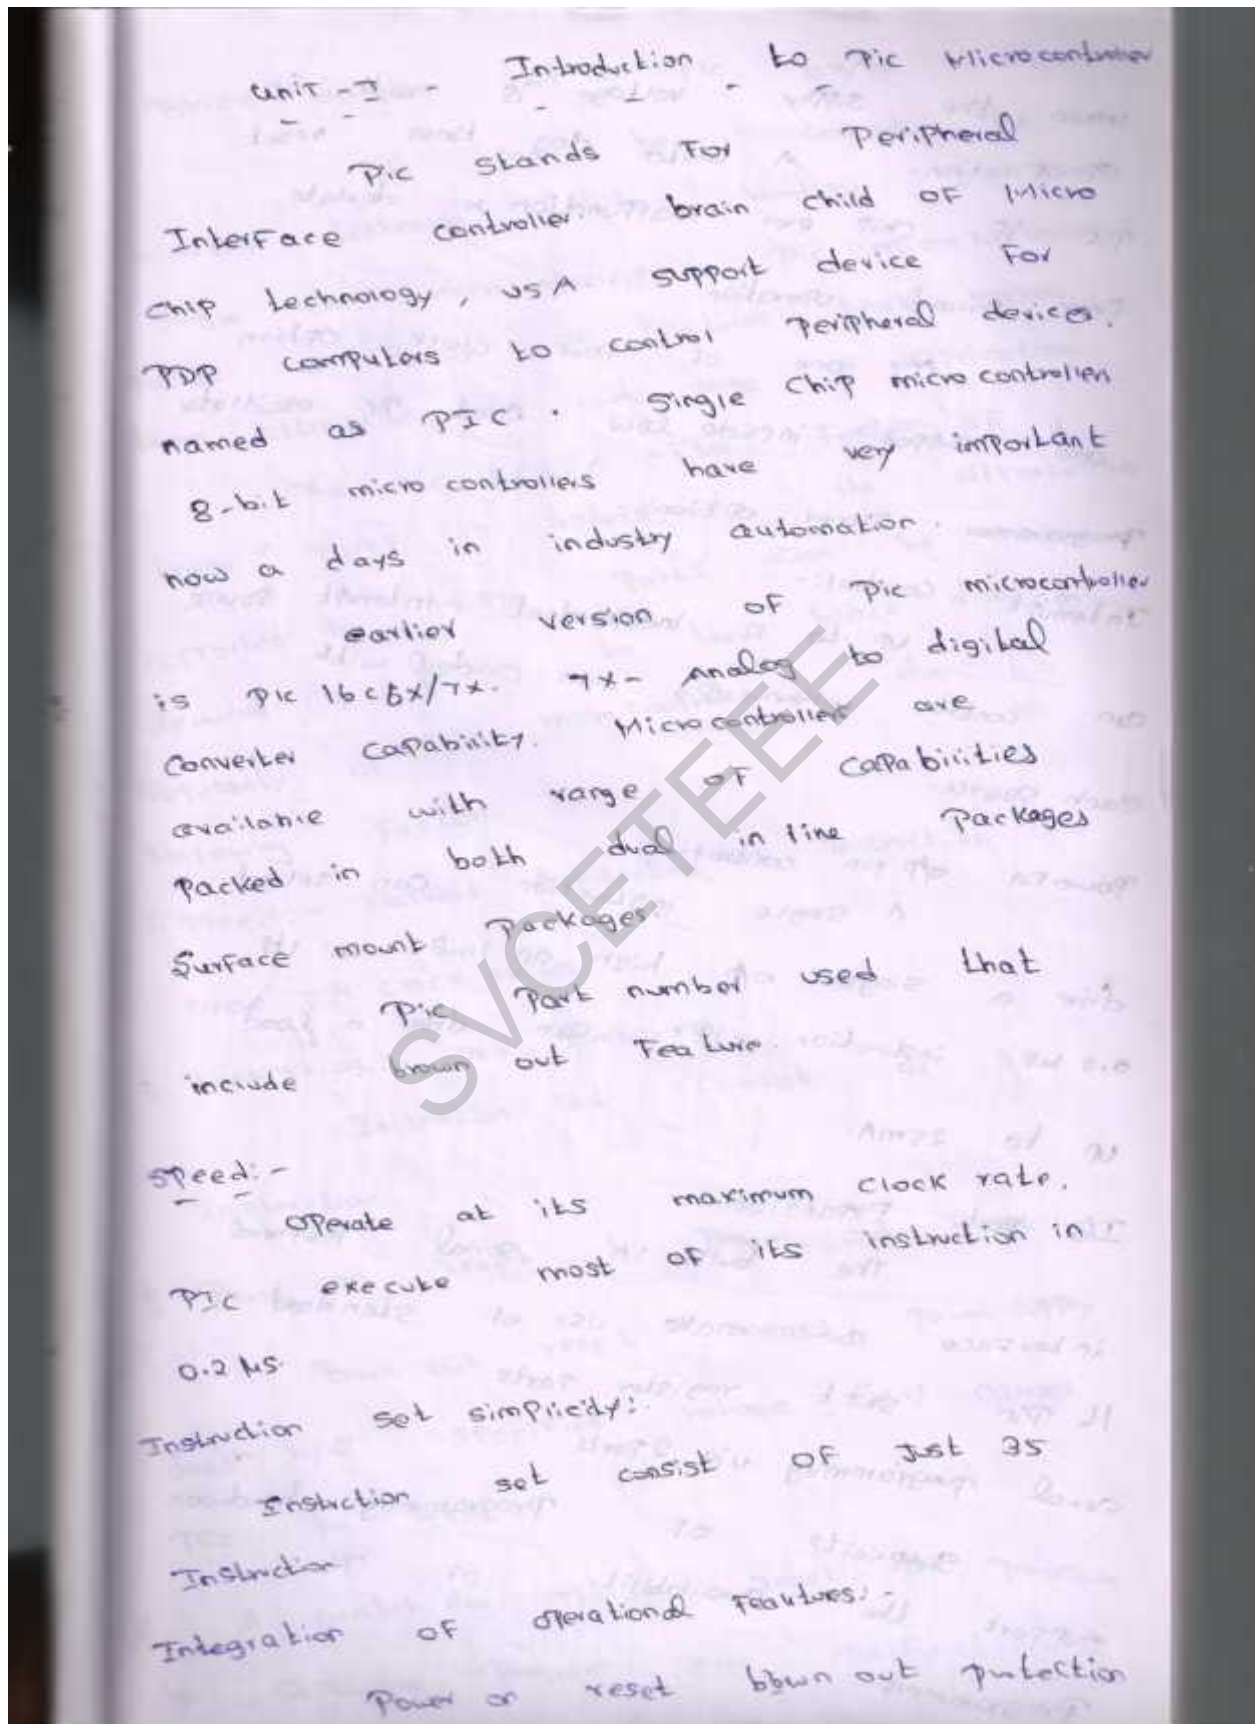 Unit - I - Introduction to Pic Microcontroller
Pic stands For Peripheral
InterFace controller brain child OF Micro
chip technology, USA support device For
PDP computors to control Peripheral devices.
named as PIC. single chip micro controllers
8-bit micro controllers have very important
now a days in industry automation.
earlier version of Pic microcontroller
is Pic 16c6x/7x. 7x- Analog to digital
Converter capability. Microcontrollers are
available with range of capabilities
Packed in both dual in line Packages
Surface mount Packages
Pic Part number used that
include brown out Feature.
Speed:-
Operate at its maximum clock rate.
PIC execute most of its instruction in
0.2 μs.
Instruction set simplicity:
Instruction set consist of Just 35
Instruction
Integration OF operational Features:-
Power on reset brown out protection
SVCETEEE